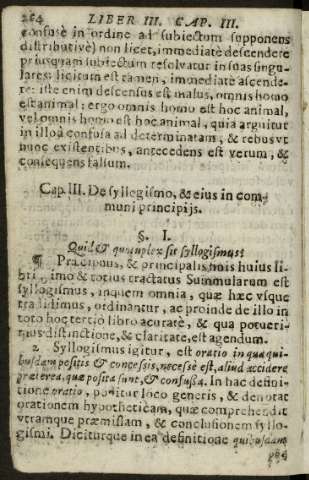 264 LIBER III. CAP. III.
confusè in ordine ad subiectum supponens
distributivè) non licet, immediatè descendere
priusquam subiectum resolvatur in suas singu-
lares: licitum est tamen, immediatè ascende-
re: iste enim descensus est malus, omnis homo
est animal; ergo omnis homo est hoc animal,
vel omnis homo est hoc animal, quia arguitur
in illo à confusa ad determinatam, & rebus vt
nunc existentibus, antecedens est verum, &
consequens falsum.
Cap. III. De syllogismo, & eius in com-
muni principijs.
§. I.
Quid & quotuplex sit syllogismus?
¶ Præcipuus, & principalis finis huius li-
bri, imo & totius tractatus Summularum est
syllogismus, in quem omnia, quæ hæc vsque
tradidimus, ordinantur, ac proinde de illo in
toto hoc tertio libro acuratè, & qua poteri-
mus distinctione, & claritate, est agendum.
2 Syllogismus igitur, est oratio in qua qui-
busdam positis & concessis, necessè est, aliud accidere
præterea, quæ posita sunt, & confusa. In hac defini-
tione oratio, ponitur loco generis, & denotat
orationem hypotheticam, quæ comprehendit
vtramque præmissam, & conclusionem syllo-
gismi. Diciturque in ea definitione quibusdam